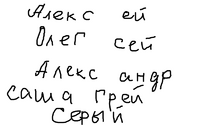 Алекс ей
Олег сей
Алекс андр
саша грей
Серый